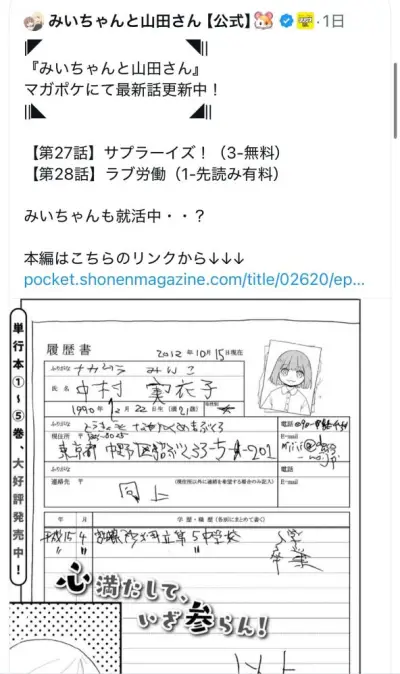 みいちゃんと山田さん【公式】🐹 ・1日
『みいちゃんと山田さん』
マガポケにて最新話更新中!
【第27話】サプラーイズ!（3-無料）
【第28話】ラブ労働（1-先読み有料）
みいちゃんも就活中・・?
本編はこちらのリンクから↓↓↓
pocket.shonenmagazine.com/title/02620/ep...
単行本①~⑤巻、大好評発売中!
履歴書 2012年10月15日現在
ふりがな ナカムラ みいこ
氏名 中村 実衣子
1990年12月22日生（満21歳）
ふりがな
電話
現住所 〒
E-mail
東京都中野区
ふりがな
電話
連絡先 〒
（現住所以外に連絡を希望する場合のみ記入）
E-mail
同上
年 月 学歴・職歴（各別にまとめて書く）
平成15 4 第5中学校 入学
〃 〃 〃 卒業
心満たして、
いざ参らん!
以上